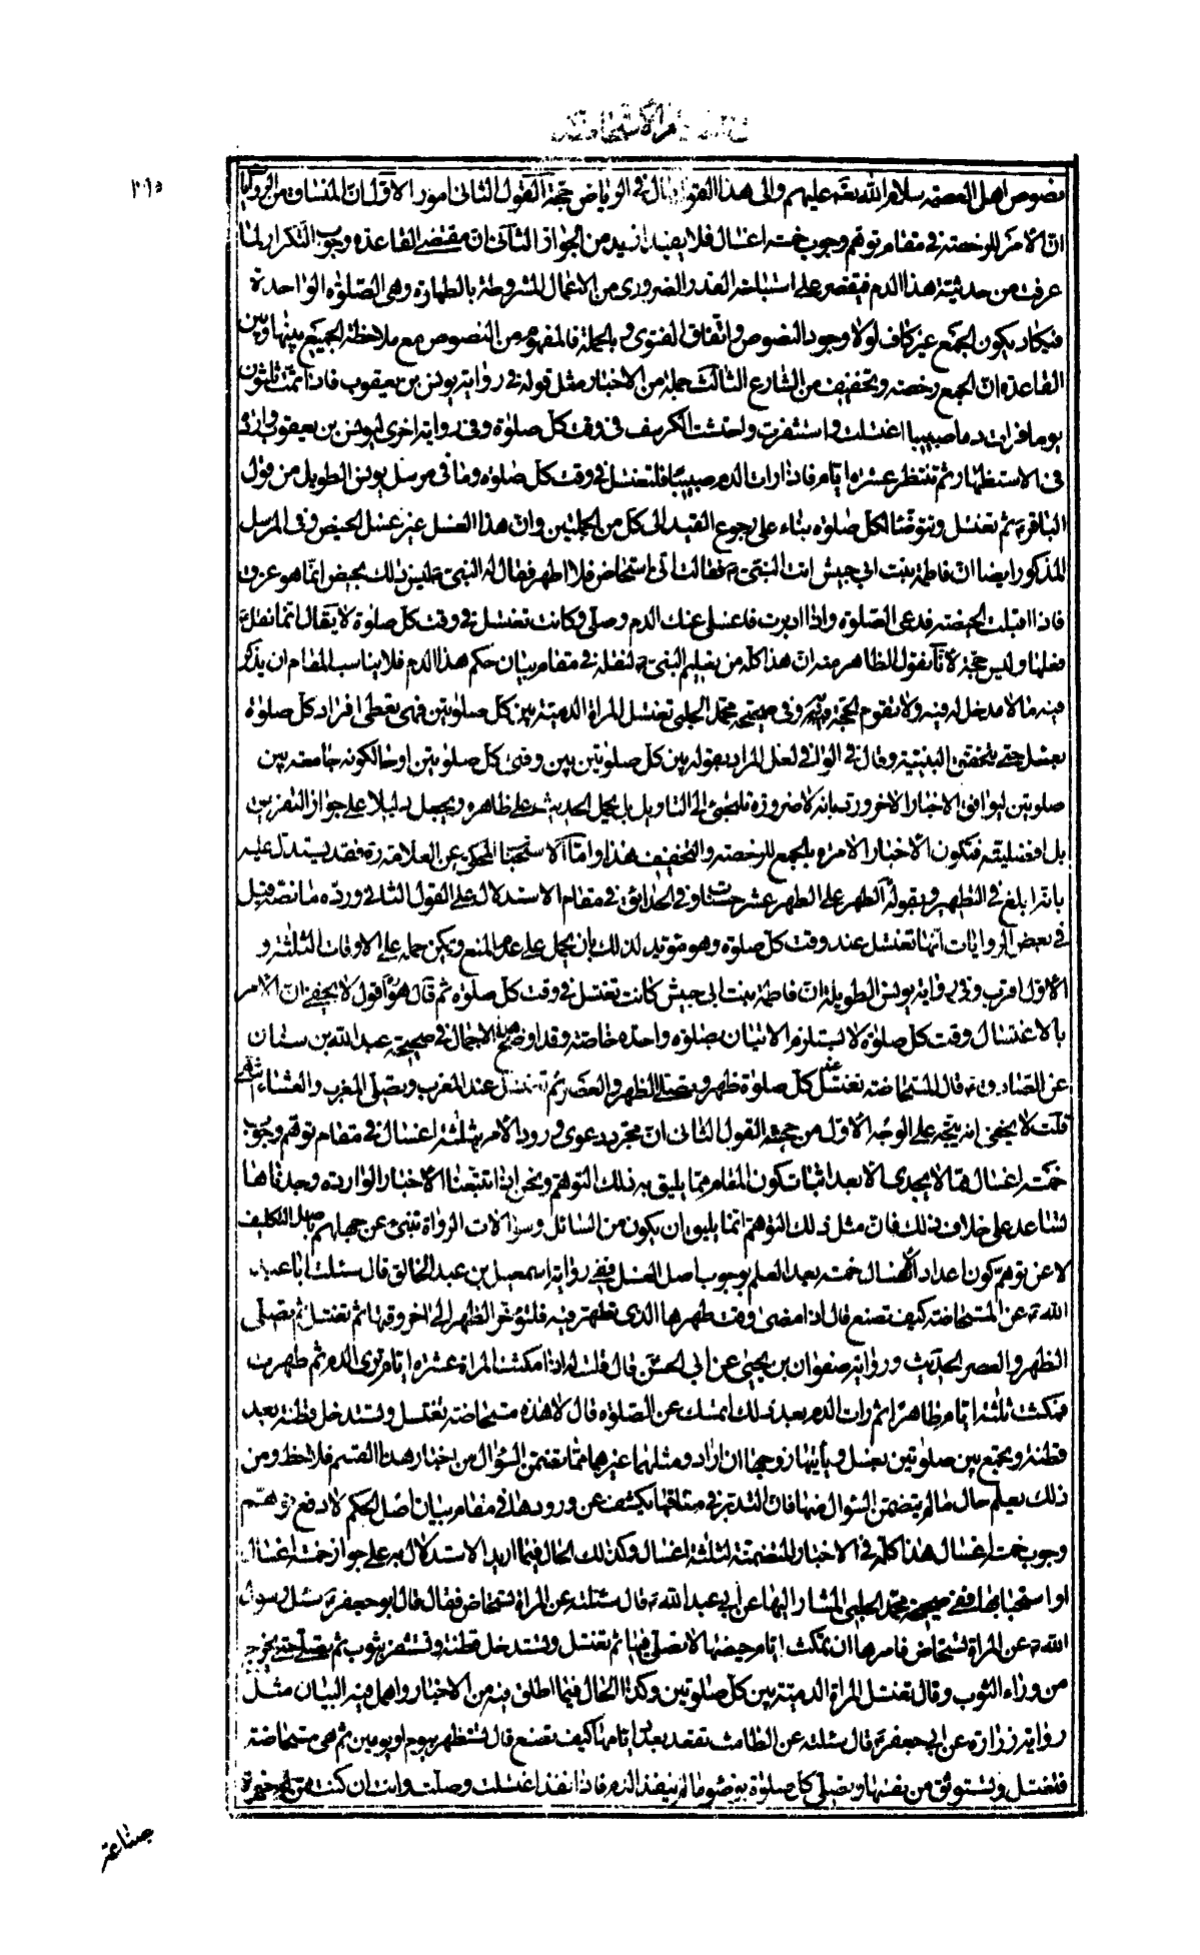 ٢١٥
نصوص اهل العصمة سلام الله عليهم والى هذا القول مال في الرياض حجة القول الثاني امور الاول ان المنساق من الروايات
ان الامر للرخصة في مقام توهم وجوب خمسة اغسال فلا يفيد ازيد من الجواز الثاني ان مقتضى القاعدة وجوب التكرار لما
عرفت من حدثية هذا الدم فيقتصر على استباحة القدر الضروري من الاعمال المشروطة بالطهارة وهي الصلوة الواحدة
فيكاد يكون الجمع غير كاف لولا وجود النصوص واتفاق الفتوى وبالجملة فالمفهوم من النصوص مع ملاحظة الجمع بينها وبين
القاعدة ان الجمع رخصة وتخفيف من الشارع الثالث جملة من الاخبار مثل قوله في رواية يونس بن يعقوب فاذا تمت ثلثون
يوما فرات دما صبيبا اغتسلت واستثفرت واحتشت بالكرسف في وقت كل صلوة وفي رواية اخرى ليونس بن يعقوب واردة
في الاستظهار ثم تنتظر عشرة ايام فاذا رات الدم صبيبا فلتغتسل في وقت كل صلوة وما في مرسل يونس الطويل من قول
الباقر ع ثم تغتسل وتتوضأ لكل صلوة بناء على رجوع القيد الى كل من الجملتين وان هذا الغسل غير غسل الحيض وفي المرسل
المذكور ايضا ان فاطمة بنت ابي حبيش اتت النبي ص فقالت اني استحاض فلا اطهر فقال لها النبي ص ليس ذلك بحيض انما هو عزف
فاذا اقبلت الحيضة فدعى الصلوة واذا ادبرت فاغسلي عنك الدم وصلى وكانت تغتسل في وقت كل صلوة لا يقال انما نقل
فعلها وليس حجة لانا نقول الظاهر منه ان هذا كله من تعليم النبي ص لنقله في مقام بيان حكم هذا الدم فلا يناسب المقام ان يذكر
فيه ما لا مدخل له فيه ولا تقوم الحجة به وفي صحيحة محمد الحلبي تغتسل المراة الدمية بين كل صلوتين فهي تعطى افراد كل صلوة
بغسل حتى يتحقق البينية وقال في الوافي لعل المراد بقوله بين كل صلوتين بين وقتي كل صلوتين اوحا لكونه جامعة بين
صلوتين ليوافق الاخبار الاخر ورد بانه لا ضرورة تلجئ الى التاويل بل يحمل الحديث على ظاهره ويجعل دليلا على جواز التفريق
بل افضليته فتكون الاخبار الامرة بالجمع للرخصة والتخفيف هذا واما الاستحباب المحكي عن العلامة ره فقد يستدل عليه
بانه ابلغ في التطهير وبقوله الطهر على الطهر عشر حسنات وفي الحدائق في مقام الاستدلال على القول الثاني ورده ما نصه قيل
في بعض الروايات انها تغتسل عند وقت كل صلوة وهو مؤيد لذلك بان يحمل على عدم المنع ويمكن حمله على الاوقات الثلثة و
الاول اقرب وفي رواية يونس الطويلة ان فاطمة بنت ابي حبيش كانت تغتسل في وقت كل صلوة ثم قال هو اقول لا يخفى ان الامر
بالاغتسال وقت كل صلوة لا يستلزم الاتيان بصلوة واحدة خاصة وقد اوضح هذا الاجمال في صحيحة عبد الله بن سنان
عن الصادق ع قال المستحاضة تغتسل عند كل صلوة ظهر وتصلى الظهر والعصر ثم تغتسل عند المغرب وتصلى المغرب والعشاء انتهى
قلت لا يخفى انه يتجه على الوجه الاول من حجة القول الثاني ان مجرد دعوى ورود الامر بثلثة اغسال في مقام توهم وجوب
خمسة اغسال هنا لا يجدى الا بعد اثبات كون المقام مما يليق به ذلك التوهم ونحن اذا تتبعنا الاخبار الواردة وجدناها
تساعد على خلاف ذلك فان مثل ذلك التوهم انما يليق ان يكون من السائل وسؤالات الرواة تنبئ عن جهلهم باصل التكليف
لا عن توهم كون اعداد الاغسال خمسة بعد العلم بوجوب اصل الغسل ففي رواية اسمعيل بن عبد الخالق قال سئلت ابا عبد
الله ع عن المستحاضة كيف تصنع قال اذا مضى وقت طهرها الذي تطهر فيه فلتؤخر الظهر الى اخر وقتها ثم تغتسل ثم تصلى
الظهر والعصر الحديث ورواية صفوان بن يحيى عن ابي الحسن قال قلت له اذا مكثت المراة عشرة ايام ترى الدم ثم طهرت
فمكثت ثلثة ايام طاهرا ثم رات الدم بعد ذلك اتمسك عن الصلوة قال لا هذه مستحاضة تغتسل وتستدخل قطنة بعد
قطنة وتجمع بين صلوتين بغسل ويأتيها زوجها ان اراد ومثلهما غيرهما مما تضمن السؤال من اخبار هذا القسم فلاحظ ومن
ذلك يعلم حال ما لم يتضمن السؤال منها فان التدبر في مساقها يكشف عن ورودها في مقام بيان اصل الحكم لا دفع توهم
وجوب خمسة اغسال هذا كله في الاخبار المتضمنة لثلثة اغسال وكذلك الحال فيما اريد الاستدلال به على جواز خمسة اغسال
او استحبابها ففي صحيحة محمد الحلبي المشار اليها عن ابي عبد الله ع قال سئلته عن المراة تستحاض فقال قال ابو جعفر ع سئل رسول
الله ص عن المراة تستحاض فامرها ان تمكث ايام حيضها لا تصلى فيها ثم تغتسل وتستدخل قطنة وتستثفر بثوب ثم تصلى حتى يخرج
من وراء الثوب وقال تغتسل المراة الدمية بين كل صلوتين وكذا الحال فيما اطلق فيه من الاخبار واهمل فيه البيان مثل
رواية زرارة عن ابي جعفر ع قال سئلته عن الطامث تقعد بعدد ايامها كيف تصنع قال تستظهر بيوم او يومين ثم هي مستحاضة
فلتغتسل وتستوثق من نفسها وتصلى كل صلوة بوضوء ما لم ينفذ الدم فاذا نفذ اغتسلت وصلت وانت ان كنت من
صناعة